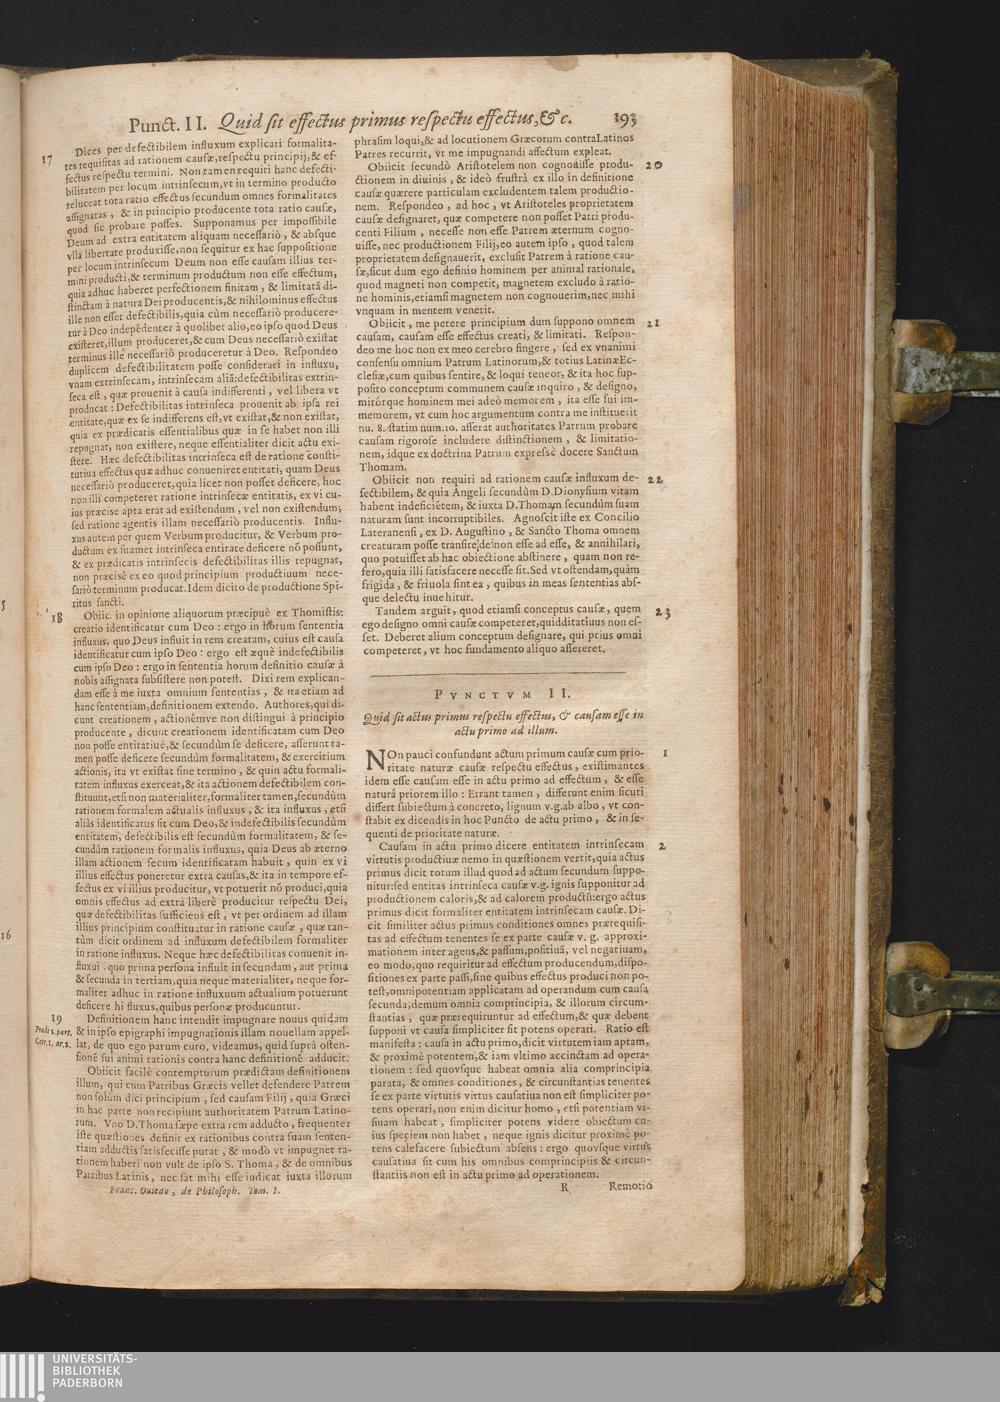 Punct. II. Quid ſit effectus primus reſpectu effectus,& c. 193
17
Dices per defectibilem influxum explicari formalita-
tes requiſitas ad rationem cauſæ,reſpectu principij,& ef-
fectus reſpectu termini. Non tamen requiri hanc defecti-
bilitatem per locum intrinſecum,vt in termino producto
reluceat tota ratio effectus ſecundum omnes formalitates
aſſignatas , & in principio producente tota ratio cauſæ,
quod ſic probare poſſes. Supponamus per impoſſibile
Deum ad extra entitatem aliquam neceſſariò , & abſque
vlla libertate produxiſſe,non ſequitur ex hac ſuppoſitione
per locum intrinſecum Deum non eſſe cauſam illius ter-
mini producti,& terminum productum non eſſe effectum,
quia adhuc haberet perfectionem finitam , & limitatã di-
ſtinctam à natura Dei producentis,& nihilominus effectus
ille non eſſet defectibilis,quia cùm neceſſariò producere-
tur à Deo indepẽdenter à quolibet alio,eo ipſo quod Deus
exiſteret,illum produceret,& cum Deus neceſſariò exiſtat
terminus ille neceſſariò produceretur à Deo. Reſpondeo
duplicem defectibilitatem poſſe conſiderari in influxu,
vnam extrinſecam, intrinſecam aliã:defectibilitas extrin-
ſeca eſt , quæ prouenit à cauſa indifferenti , vel libera vt
producat : Defectibilitas intrinſeca prouenit ab ipſa rei
entitate,quæ ex ſe indifferens eſt,vt exiſtat,& non exiſtat,
quia ex prædicatis eſſentialibus quæ in ſe habet non illi
repugnat, non exiſtere, neque eſſentialiter dicit actu exi-
ſtere. Hæc defectibilitas intrinſeca eſt de ratione conſti-
tutiua effectus quæ adhuc conueniret entitati, quam Deus
neceſſariò produceret,quia licet non poſſet deficere, hoc
non illi competeret ratione intrinſecæ entitatis, ex vi cu-
ius præciſe apta erat ad exiſtendum , vel non exiſtendum;
ſed ratione agentis illam neceſſariò producentis. Influ-
xus autem per quem Verbum producitur, & Verbum pro-
ductum ex ſuamet intrinſeca entitate deficere nõ poſſunt,
& ex prædicatis intrinſecis defectibilitas illis repugnat,
non præcisè ex eo quod principium productiuum nece-
ſariò terminum producat.Idem dicito de productione Spi-
ritus ſancti.
18
Obiic. in opinione aliquorum præcipuè ex Thomiſtis:
creatio identificatur cum Deo : ergo in horum ſententia
influxus, quo Deus influit in rem creatam, cuius eſt cauſa
identificatur cum ipſo Deo : ergo eſt æquè indefectibilis
cum ipſo Deo : ergo in ſententia horum definitio cauſæ à
nobis aſſignata ſubſiſtere non poteſt. Dixi rem explican-
dam eſſe à me iuxta omnium ſententias , & ita etiam ad
hanc ſententiam,definitionem extendo. Authores,qui di-
cunt creationem , actionémve non diſtingui à principio
producente , dicunt creationem identificatam cum Deo
non poſſe entitatiuè,& ſecundùm ſe deficere, aſſerunt ta-
men poſſe deficere ſecundùm formalitatem, & exercitium
actionis, ita vt exiſtat ſine termino , & quin actu formali-
tatem influxus exerceat,& ita actionem defectibilem con-
ſtituunt,etſi non materialiter,formaliter tamen,ſecundùm
rationem formalem actualis influxus , & ita influxus , etſi
aliàs identificatus ſit cum Deo,& indefectibilis ſecundùm
entitatem, defectibilis eſt ſecundùm formalitatem, & ſe-
cundùm rationem formalis influxus, quia Deus ab æterno
illam actionem ſecum identificatam habuit , quin ex vi
illius effectus poneretur extra cauſas,& ita in tempore ef-
fectus ex vi illius producitur, vt potuerit nõ produci,quia
omnis effectus ad extrà liberè producitur reſpectu Dei,
quæ defectibilitas ſufficiens eſt , vt per ordinem ad illam
illius principium conſtituatur in ratione cauſæ , quæ tan-
tùm dicit ordinem ad influxum defectibilem formaliter
in ratione influxus. Neque hæc defectibilitas conuenit in-
fluxui , quo prima perſona influit in ſecundam, aut prima
& ſecunda in tertiam,quia neque materialiter, neque for-
maliter adhuc in ratione influxuum actualium potuerunt
deficere hi fluxus,quibus perſonæ producuntur.
19
Definitionem hanc intendit impugnare nouus quidam
& in ipſo epigraphi impugnationis illam nouellam appel-
lat, de quo ego parum curo, videamus, quid ſuprà oſten-
ſionẽ ſui animi rationis contra hanc definitionẽ adducit.
Obiicit facilè contempturum prædictam definitionem
illum, qui cum Patribus Græcis vellet defendere Patrem
non ſolùm dici principium , ſed cauſam Filij , quia Græci
in hac parte non recipiunt authoritatem Patrum Latino-
rum. Vno D.Thoma ſæpe extra rem adducto , frequenter
iſte quæſtiones definit ex rationibus contra ſuam ſenten-
tiam adductis ſatisfeciſſe putat , & modò vt impugnet ra-
tionem haberi non vult de ipſo S. Thoma , & de omnibus
Patribus Latinis , nec ſat mihi eſſe iudicat iuxta illorum
Franc. Ouiedo , de Philoſoph. Tom. I.
phraſim loqui,& ad locutionem Græcorum contraLatinos
Patres recurrit, vt me impugnandi affectum expleat.
20
Obiicit ſecundò Ariſtotelem non cognouiſſe produ-
ctionem in diuinis , & ideò fruſtrà ex illo in definitione
cauſæ quærere particulam excludentem talem productio-
nem. Reſpondeo , ad hoc , vt Ariſtoteles proprietatem
cauſæ deſignaret, quæ competere non poſſet Patri produ-
centi Filium , neceſſe non eſſe Patrem æternum cogno-
uiſſe, nec productionem Filij,eo autem ipſo , quod talem
proprietatem deſignauerit, excluſit Patrem à ratione cau-
ſæ,ſicut dum ego definio hominem per animal rationale,
quod magneti non competit, magnetem excludo à ratio-
ne hominis,etiamſi magnetem non cognouerim,nec mihi
vnquam in mentem venerit.
21
Obiicit , me petere principium dum ſuppono omnem
cauſam, cauſam eſſe effectus creati, & limitati. Reſpon-
deo me hoc non ex meo cerebro fingere , ſed ex vnanimi
conſenſu omnium Patrum Latinorum,& totius LatinæEc-
cleſiæ,cum quibus ſentire, & loqui teneor, & ita hoc ſup-
poſito conceptum communem cauſæ inquiro , & deſigno,
mirórque hominem mei adeò memorem , ita eſſe ſui im-
memorem, vt cum hoc argumentum contra me inſtituerit
nu. 8. ſtatim num.10. aſſerat authoritates Patrum probare
cauſam rigoroſe includere diſtinctionem , & limitatio-
nem, idque ex doctrina Patrum expreſsè docere Sanctum
Thomam.
22
Obiicit non requiri ad rationem cauſæ influxum de-
fectibilem, & quia Angeli ſecundùm D.Dionyſium vitam
habent indeficiẽtem, & iuxta D.Thomam ſecundùm ſuam
naturam ſunt incorruptibiles. Agnoſcit iſte ex Concilio
Lateranenſi, ex D. Auguſtino , & Sancto Thoma omnem
creaturam poſſe tranſire,de non eſſe ad eſſe, & annihilari,
quo potuiſſet ab hac obiectione abſtinere , quam non re-
fero,quia illi ſatisfacere neceſſe ſit.Sed vt oſtendam,quàm
frigida , & friuola ſint ea , quibus in meas ſententias abſ-
que delectu inuehitur.
23
Tandem arguit, quod etiamſi conceptus cauſæ, quem
ego deſigno omni cauſæ competeret,quidditatiuus non eſ-
ſet. Deberet alium conceptum deſignare, qui prius omni
competeret, vt hoc fundamento aliquo aſſereret.
PVNCTVM II.
Quid ſit actus primus reſpectu effectus, & cauſam eſſe in
actu primo ad illum.
1
NOn pauci confundunt actum primum cauſæ cum prio-
ritate naturæ cauſæ reſpectu effectus , exiſtimantes
idem eſſe cauſam eſſe in actu primo ad effectum , & eſſe
naturâ priorem illo : Errant tamen , differunt enim ſicuti
differt ſubiectum à concreto, lignum v.g.ab albo , vt con-
ſtabit ex dicendis in hoc Puncto de actu primo , & in ſe-
quenti de prioritate naturæ.
2
Cauſam in actu primo dicere entitatem intrinſecam
virtutis productiuæ nemo in quæſtionem vertit,quia actus
primus dicit totum illud quod ad actum ſecundum ſuppo-
nitur:ſed entitas intrinſeca cauſæ v.g. ignis ſupponitur ad
productionem caloris,& ad calorem productũ:ergo actus
primus dicit formaliter entitatem intrinſecam cauſæ. Di-
cit ſimiliter actus primus conditiones omnes prærequiſi-
tas ad effectum tenentes ſe ex parte cauſæ v. g. approxi-
mationem inter agens,& paſſum,poſitiuã, vel negatiuam,
eo modo,quo requiritur ad effectum producendum,diſpo-
ſitiones ex parte paſſi,ſine quibus effectus produci non po-
teſt,omnipotentiam applicatam ad operandum cum cauſa
ſecunda,demum omnia comprincipia, & illorum circum-
ſtantias , quæ prærequiruntur ad effectum,& quæ debent
ſupponi vt cauſa ſimpliciter ſit potens operari. Ratio eſt
manifeſta : cauſa in actu primo,dicit virtutem iam aptam,
& proximè potentem,& iam vltimo accinctam ad opera-
tionem : ſed quovſque habeat omnia alia comprincipia
parata, & omnes conditiones , & circunſtantias tenentes
ſe ex parte virtutis virtus cauſatiua non eſt ſimpliciter po-
tens operari, non enim dicitur homo , etſi potentiam vi-
ſiuam habeat , ſimpliciter potens videre obiectum cu-
ius ſpeciem non habet , neque ignis dicitur proximè po-
tens calefacere ſubiectum abſens : ergo quovſque virtus
cauſatiua ſit cum his omnibus comprincipiis & circun-
ſtantiis non eſt in actu primo ad operationem.
R Remotio
16
UNIVERSITÄTS-
BIBLIOTHEK
PADERBORN